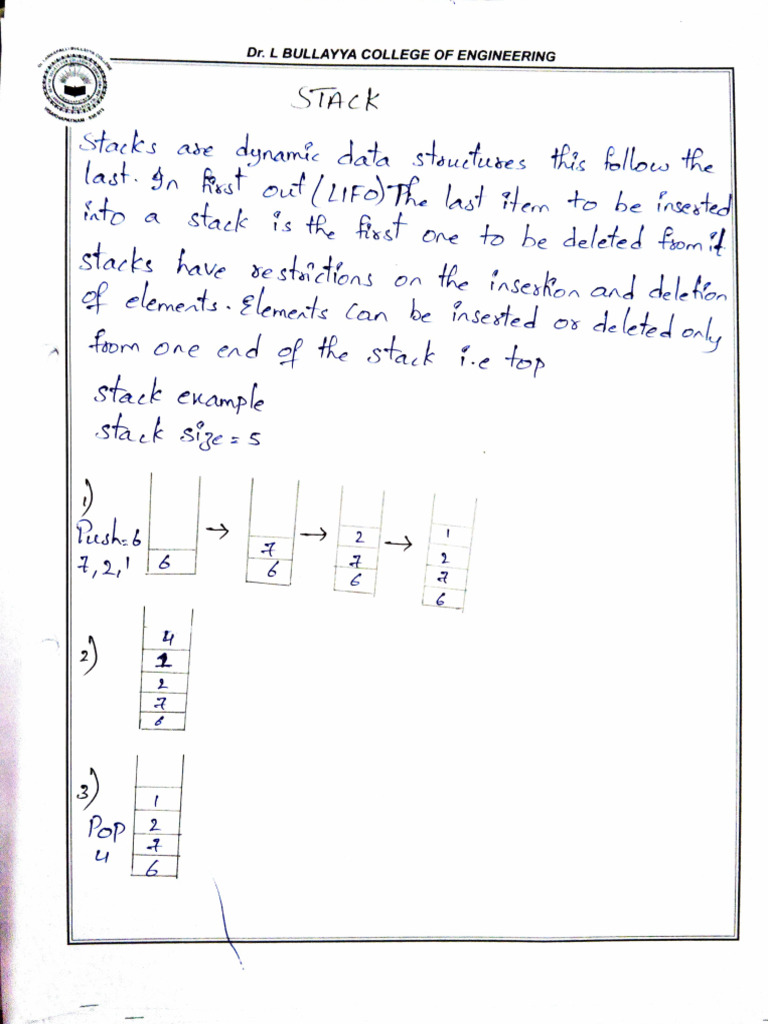 Dr. L BULLAYYA COLLEGE OF ENGINEERING
STACK
Stacks are dynamic data structures this follow the
last. In first out (LIFO) The last item to be inserted
into a stack is the first one to be deleted from it
stacks have restrictions on the insertion and deletion
of elements. Elements can be inserted or deleted only
from one end of the stack i.e top
stack example
stack size = 5
1)
Push=6
7, 2, 1
6
→
7
6
→
2
7
6
→
1
2
7
6
2)
4
1
2
7
6
3)
POP
4
1
2
7
6